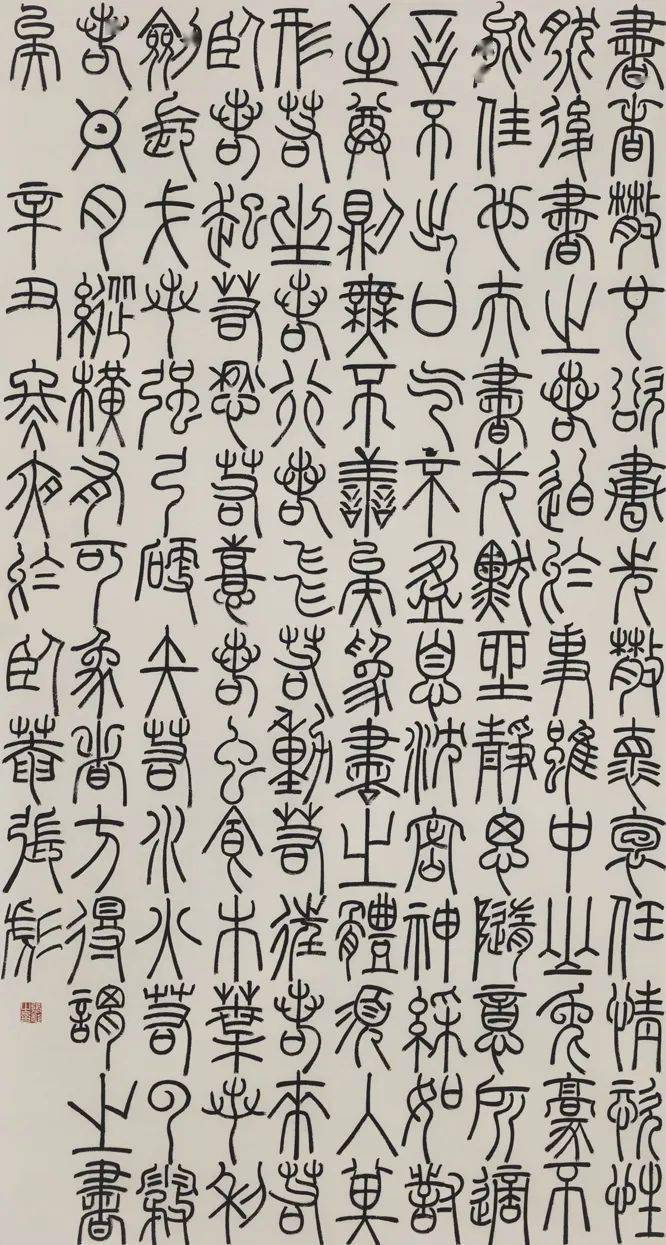 書者散也欲書先散褱抱任情恣性
然後書之若迫於事雖中山兔豪不
能佳也夫書先默坐靜思隨意所適
言不出口气不盈息沈密神綵如對
至尊則無不善矣篆書之體須入其
形若坐若行若飛若動若往若來若
臥若起若愁若喜若虫食木葉若利
劍長戈若強弓硬矢若水火若雲霧
若日月縱橫有可象者方得謂之書
矣 辛丑寒夜於臥張彪